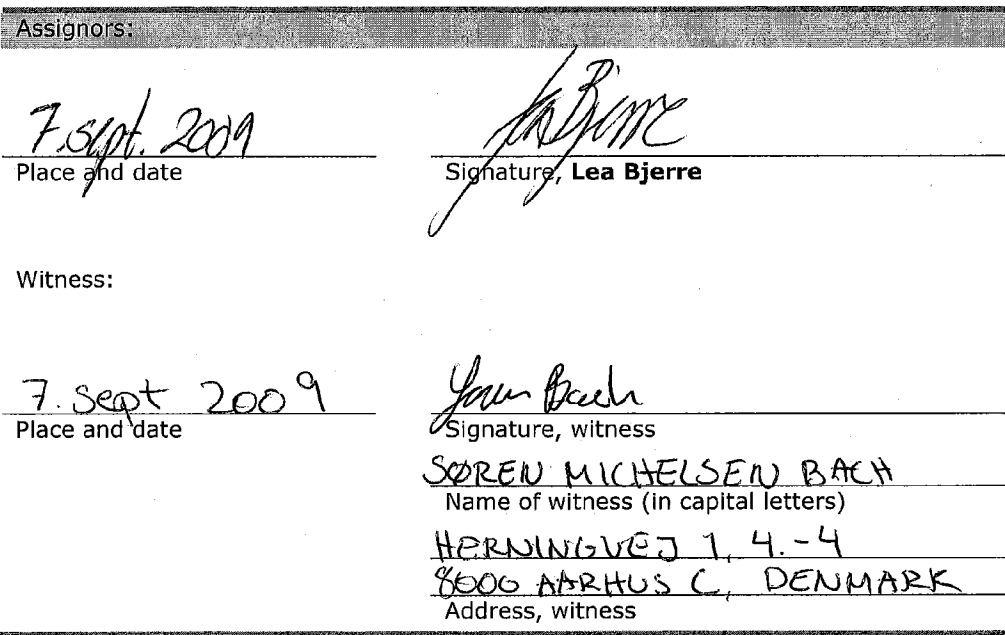 Assignors:
7. sept. 2009 Lea Bjerre
Place and date Signature, Lea Bjerre
Witness:
7. sept 2009 Søren Bach
Place and date Signature, witness
SØREN MICHELSEN BACH
Name of witness (in capital letters)
HERNINGVEJ 1, 4.-4
8000 AARHUS C, DENMARK
Address, witness